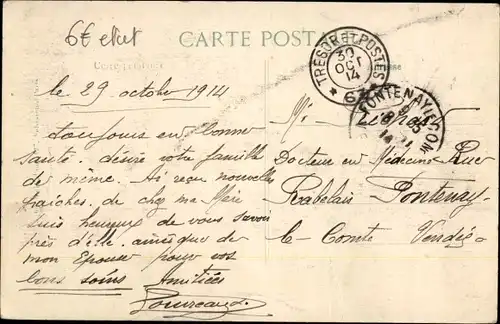 6€
CARTE POSTALE
Correspondance
TRESOR ET POSTES
30
OCT
14
* 6
FONTENAY-LE-COM
le 29 octobre 1914
toujours en bonne
santé. désire votre famille
de même. Ai reçu nouvelles
fraîches. de chez ma Mère
suis heureux de vous savoir
près d'elle. ainsi que de
mon Epouse pour vos
bons soins Amitiées
Docteur en Médecine Rue
Rabelais Fontenay-
le-Comte Vendée